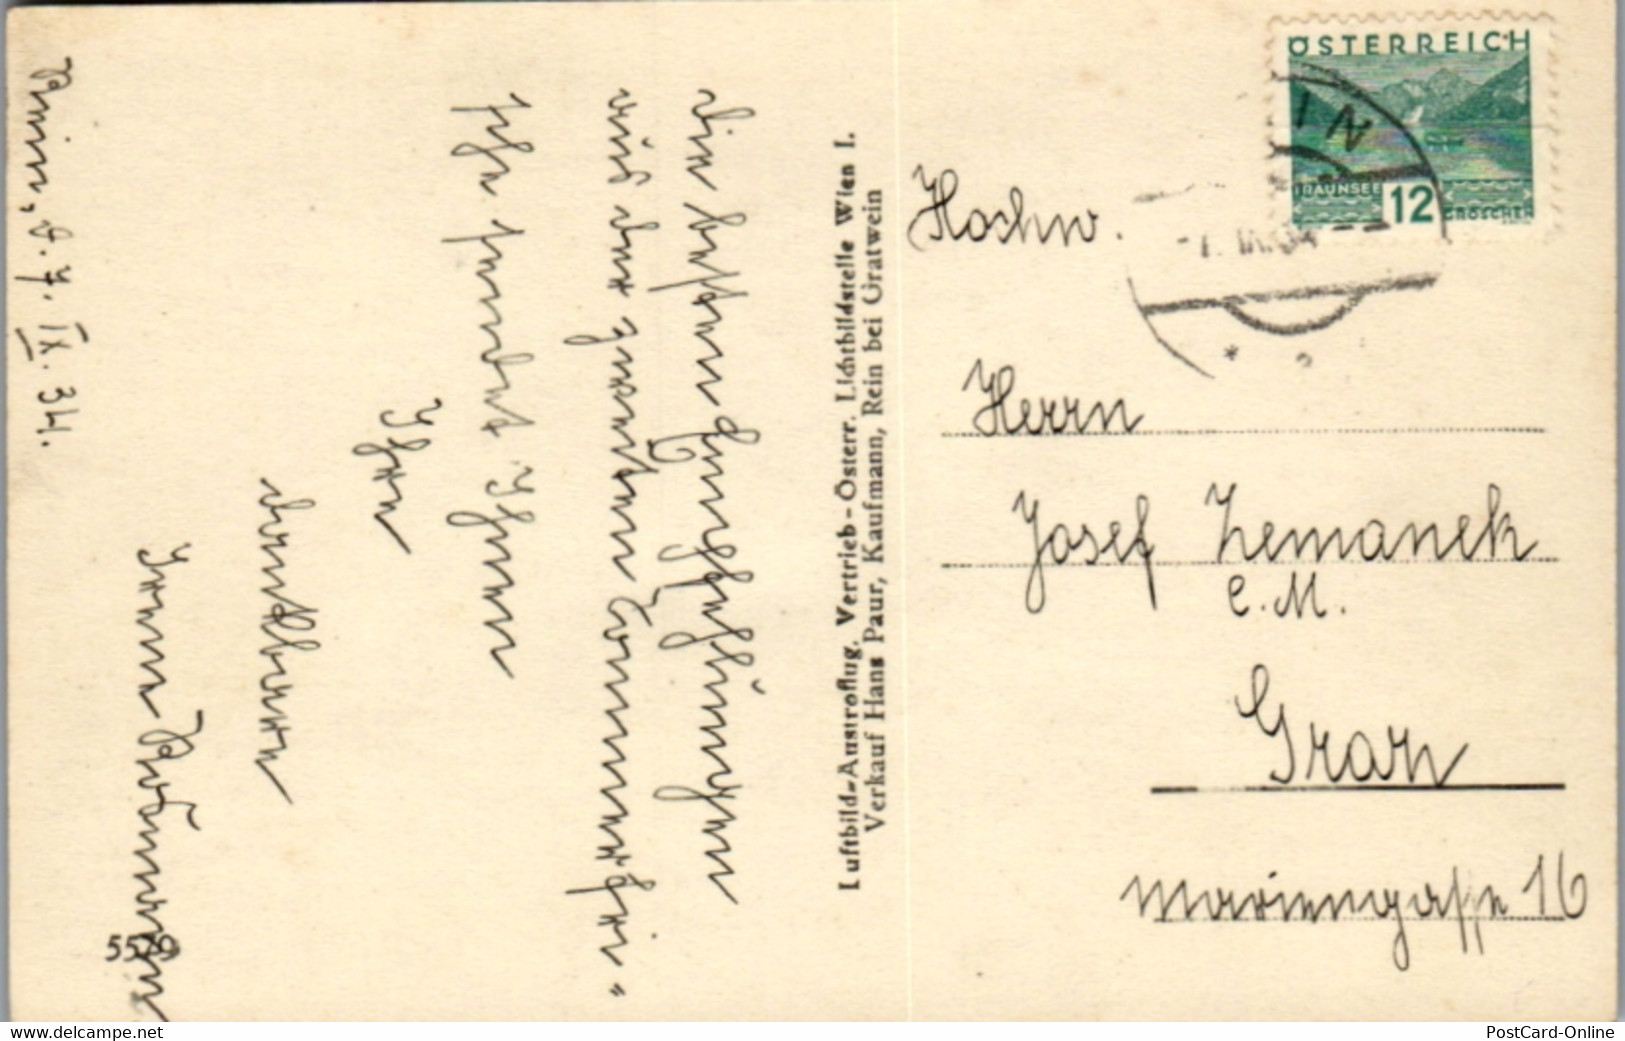 Rein, d. 7. IX. 34.
Die besten Segensgrüße
aus dem
sendet Ihnen
Ihr
dankbarer
5529
Luftbild-Austroflug. Vertrieb-Österr. Lichtbildstelle Wien I.
Verkauf Hans Paur, Kaufmann, Rein bei Gratwein
ÖSTERREICH
TRAUNSEE 12 GROSCHEN
Hochw.
Herrn
Josef Zemanek
C.M.
Graz
Mariengasse 16
delcampe.net
PostCard-Online